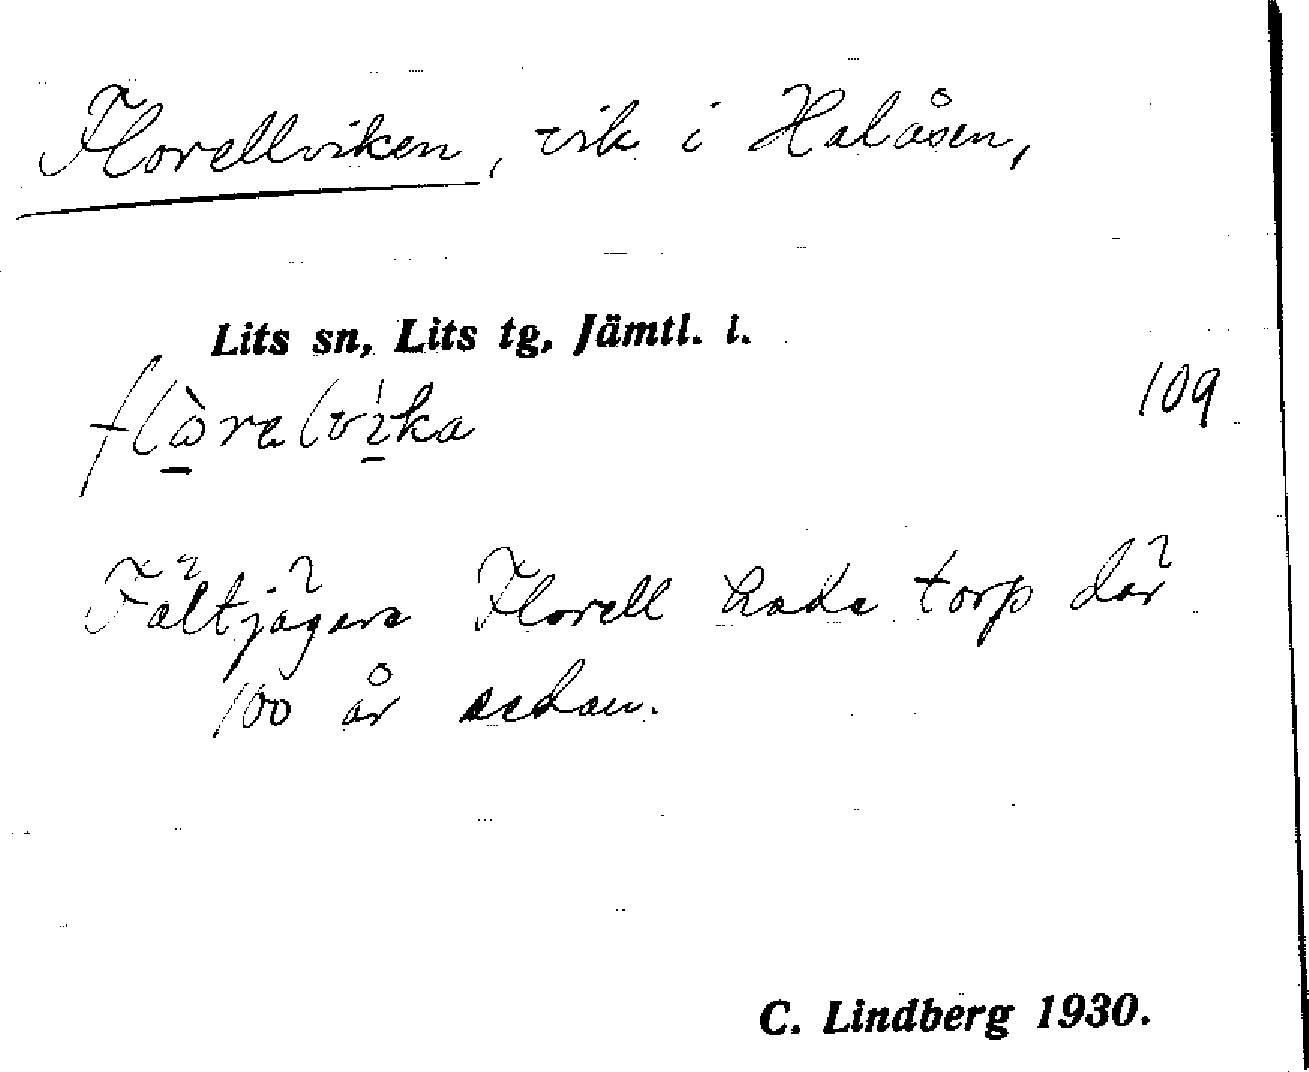 Florellviken, vik i Halåsen,
Lits sn, Lits tg, Jämtl. l.
109
flòrelvika
Fältjägare Florell hade torp där
100 år sedan.
C. Lindberg 1930.